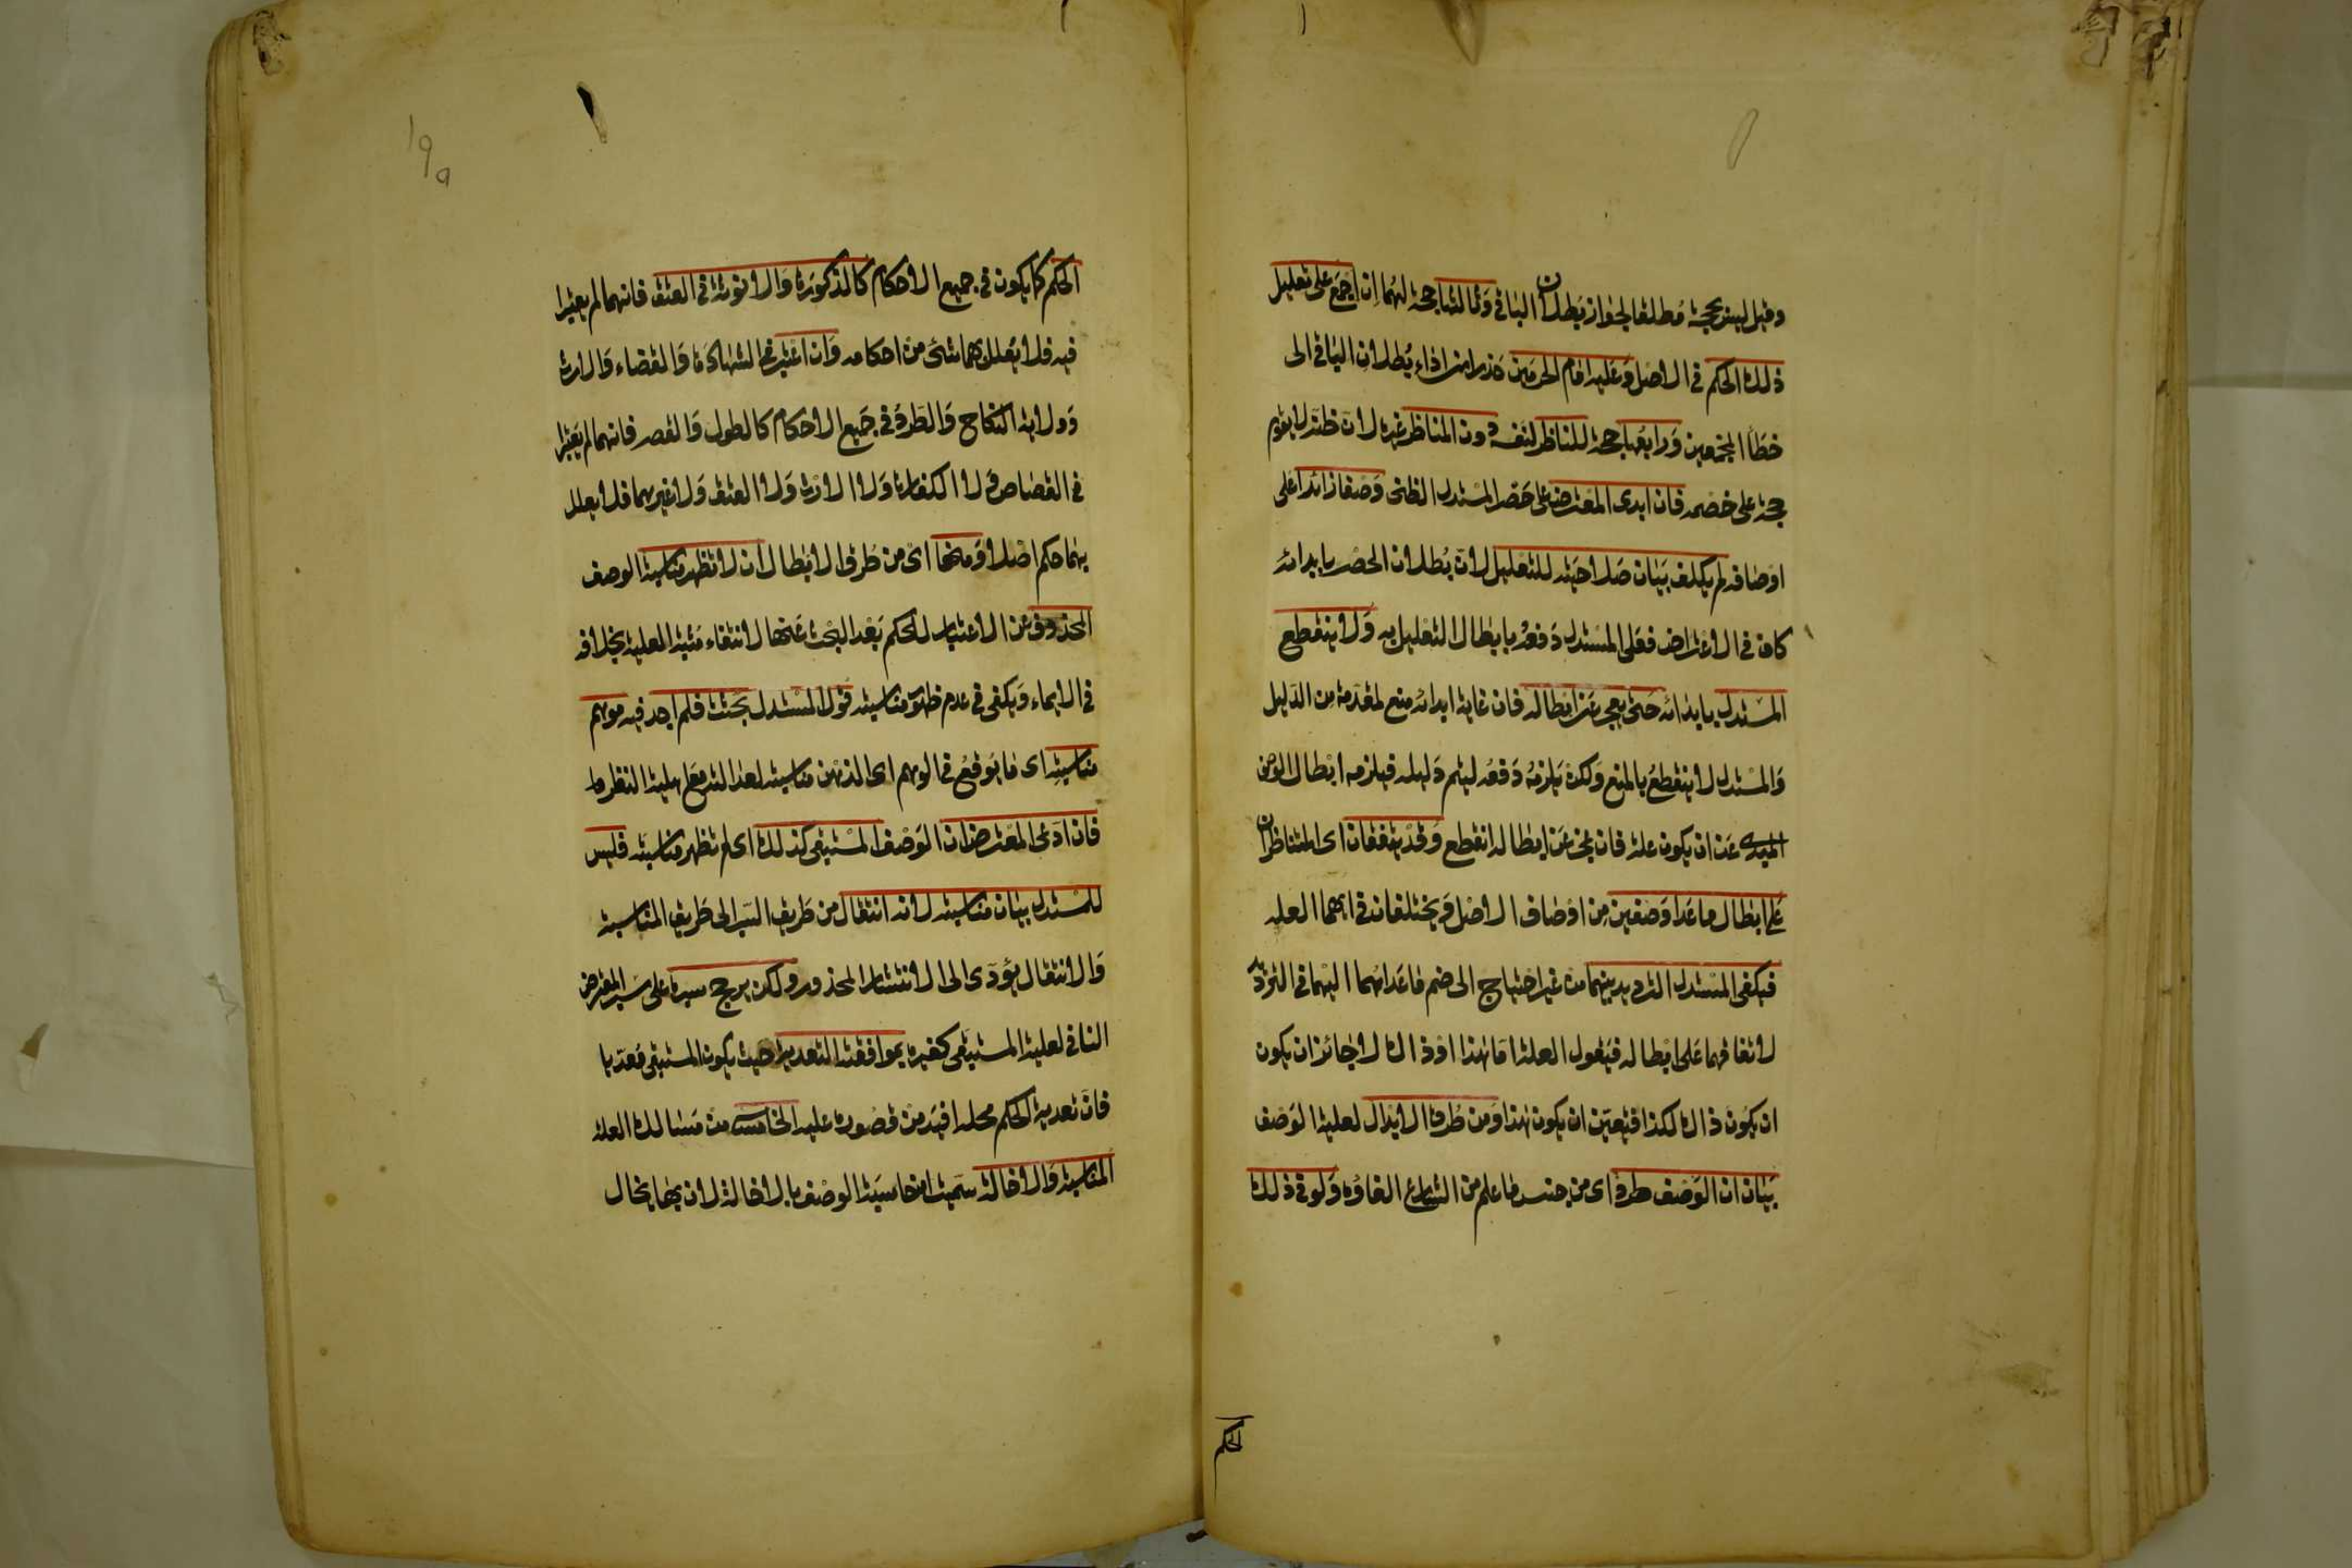 وقيل ليس بحجة مطلقا لجواز بطلان الباقي وثالثها حجة لهما ان اجمع على تعليل
ذلك الحكم في الاصل وعليه امام الحرمين حذرا من اداء بطلان الباقي الى
خطأ المجمعين ورابعها حجة للناظر لنفسه دون المناظر غيره لان ظنه لا يقوم
حجة على خصمه فان ابدى المعترض على حصر المستدل الظني وصفا زائدا على
اوصافه لم يكلف بيان صلاحيته للتعليل لان بطلان الحصر بابدائه
كاف في الاعتراض فعلى المستدل دفعه بابطال التعليل به ولا ينقطع
المستدل بابدائه حتى يعجز عن ابطاله فان غاية ابدائه منع لمقدمة من الدليل
والمستدل لا ينقطع بالمنع ولكن يلزمه دفعه ليتم دليله فيلزمه ابطال الوصف
المبدى عن ان يكون علة فان عجز عن ابطاله انقطع وقد يتفقان اى المتناظران
على ابطال ما عدا وصفين من اوصاف الاصل ويختلفان في ايهما العلة
فيكفي المستدل الترديد بينهما من غير احتياج الى ضم ما عداهما اليهما في الترديد
لاتفاقهما على ابطاله فيقول العلة اما هذا او ذاك لا جائز ان يكون
ان يكون ذاك لكذا فتعين ان يكون هذا ومن طرق الابطال لعلية الوصف
بيان ان الوصف طرد اى من جنس ما علم من الشارع الغاؤه ولو في ذلك
الحكم
الحكم كما يكون في جميع الاحكام كالذكورة والانوثة في العتق فانهما لم يعتبرا
فيه فلا يعلل بهما شئ من احكامه وان اعتبرا في الشهادة والقضاء والارث
وولاية النكاح والطرد في جميع الاحكام كالطول والقصر فانهما لم يعتبرا
في القصاص ولا الكفارة ولا الارث ولا العتق ولا غيرهما فلا يعلل
بهما حكم اصلا ومنها اى من طرق الابطال ان لا تظهر مناسبة الوصف
المحذوف عن الاعتبار للحكم بعد البحث عنها لانتفاء مثبت العلية بخلافه
في الايماء ويكفي في عدم ظهور مناسبته قول المستدل بحثت فلم اجد فيه موهم
مناسبة اى ما يوقع في الوهم اى الذهن مناسبته لعدالته مع اهلية النظر
فان ادعى المعترض ان الوصف المستبقى كذلك اى لم تظهر مناسبته فليس
للمستدل بيان مناسبته لانه انتقال من طريق السبر الى طريق المناسبة
والانتقال يؤدى الى الانتشار المحذور ولكن يرجح سبره على سبر المعترض
النافي لعلية المستبقى كغيره بموافقة التعدية حيث يكون المستبقى متعديا
فان تعدية الحكم محله افيد من قصوره عليه الخامس من مسالك العلة
المناسبة والاخالة سميت مناسبة الوصف بالاخالة لان بها يخال